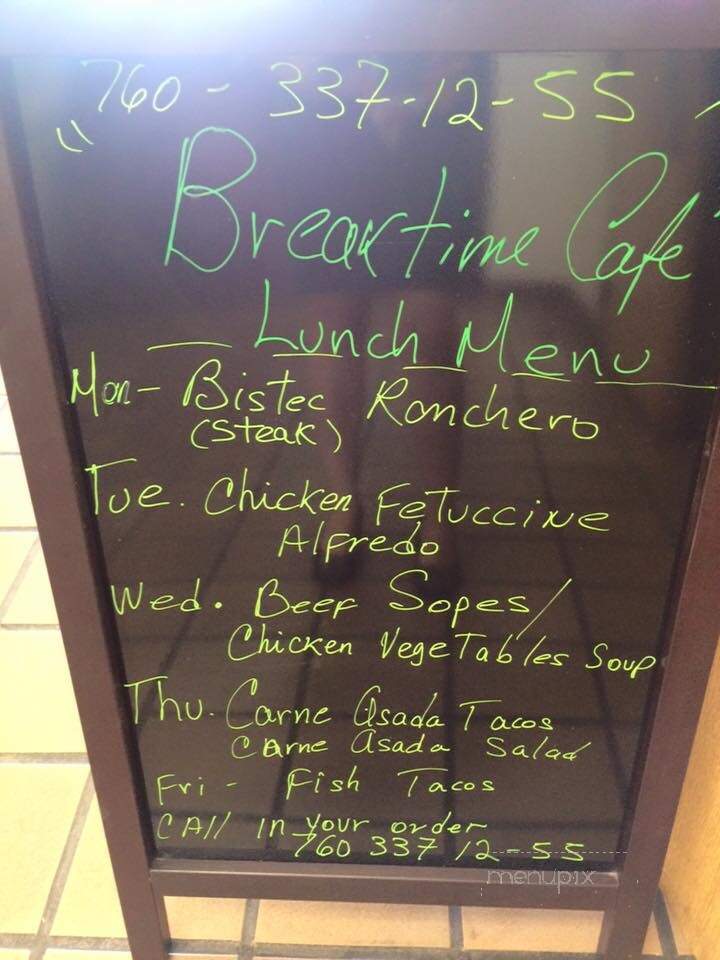 760 - 337-12-55
" Breaktime Cafe "
Lunch Menu
Mon - Bistec Ranchero
(Steak)
Tue. Chicken Fetuccine
Alfredo
Wed. Beef Sopes /
Chicken Vegetables Soup
Thu. Carne Asada Tacos
Carne Asada Salad
Fri - Fish Tacos
CAll in your order
760 337 12-55
menupix